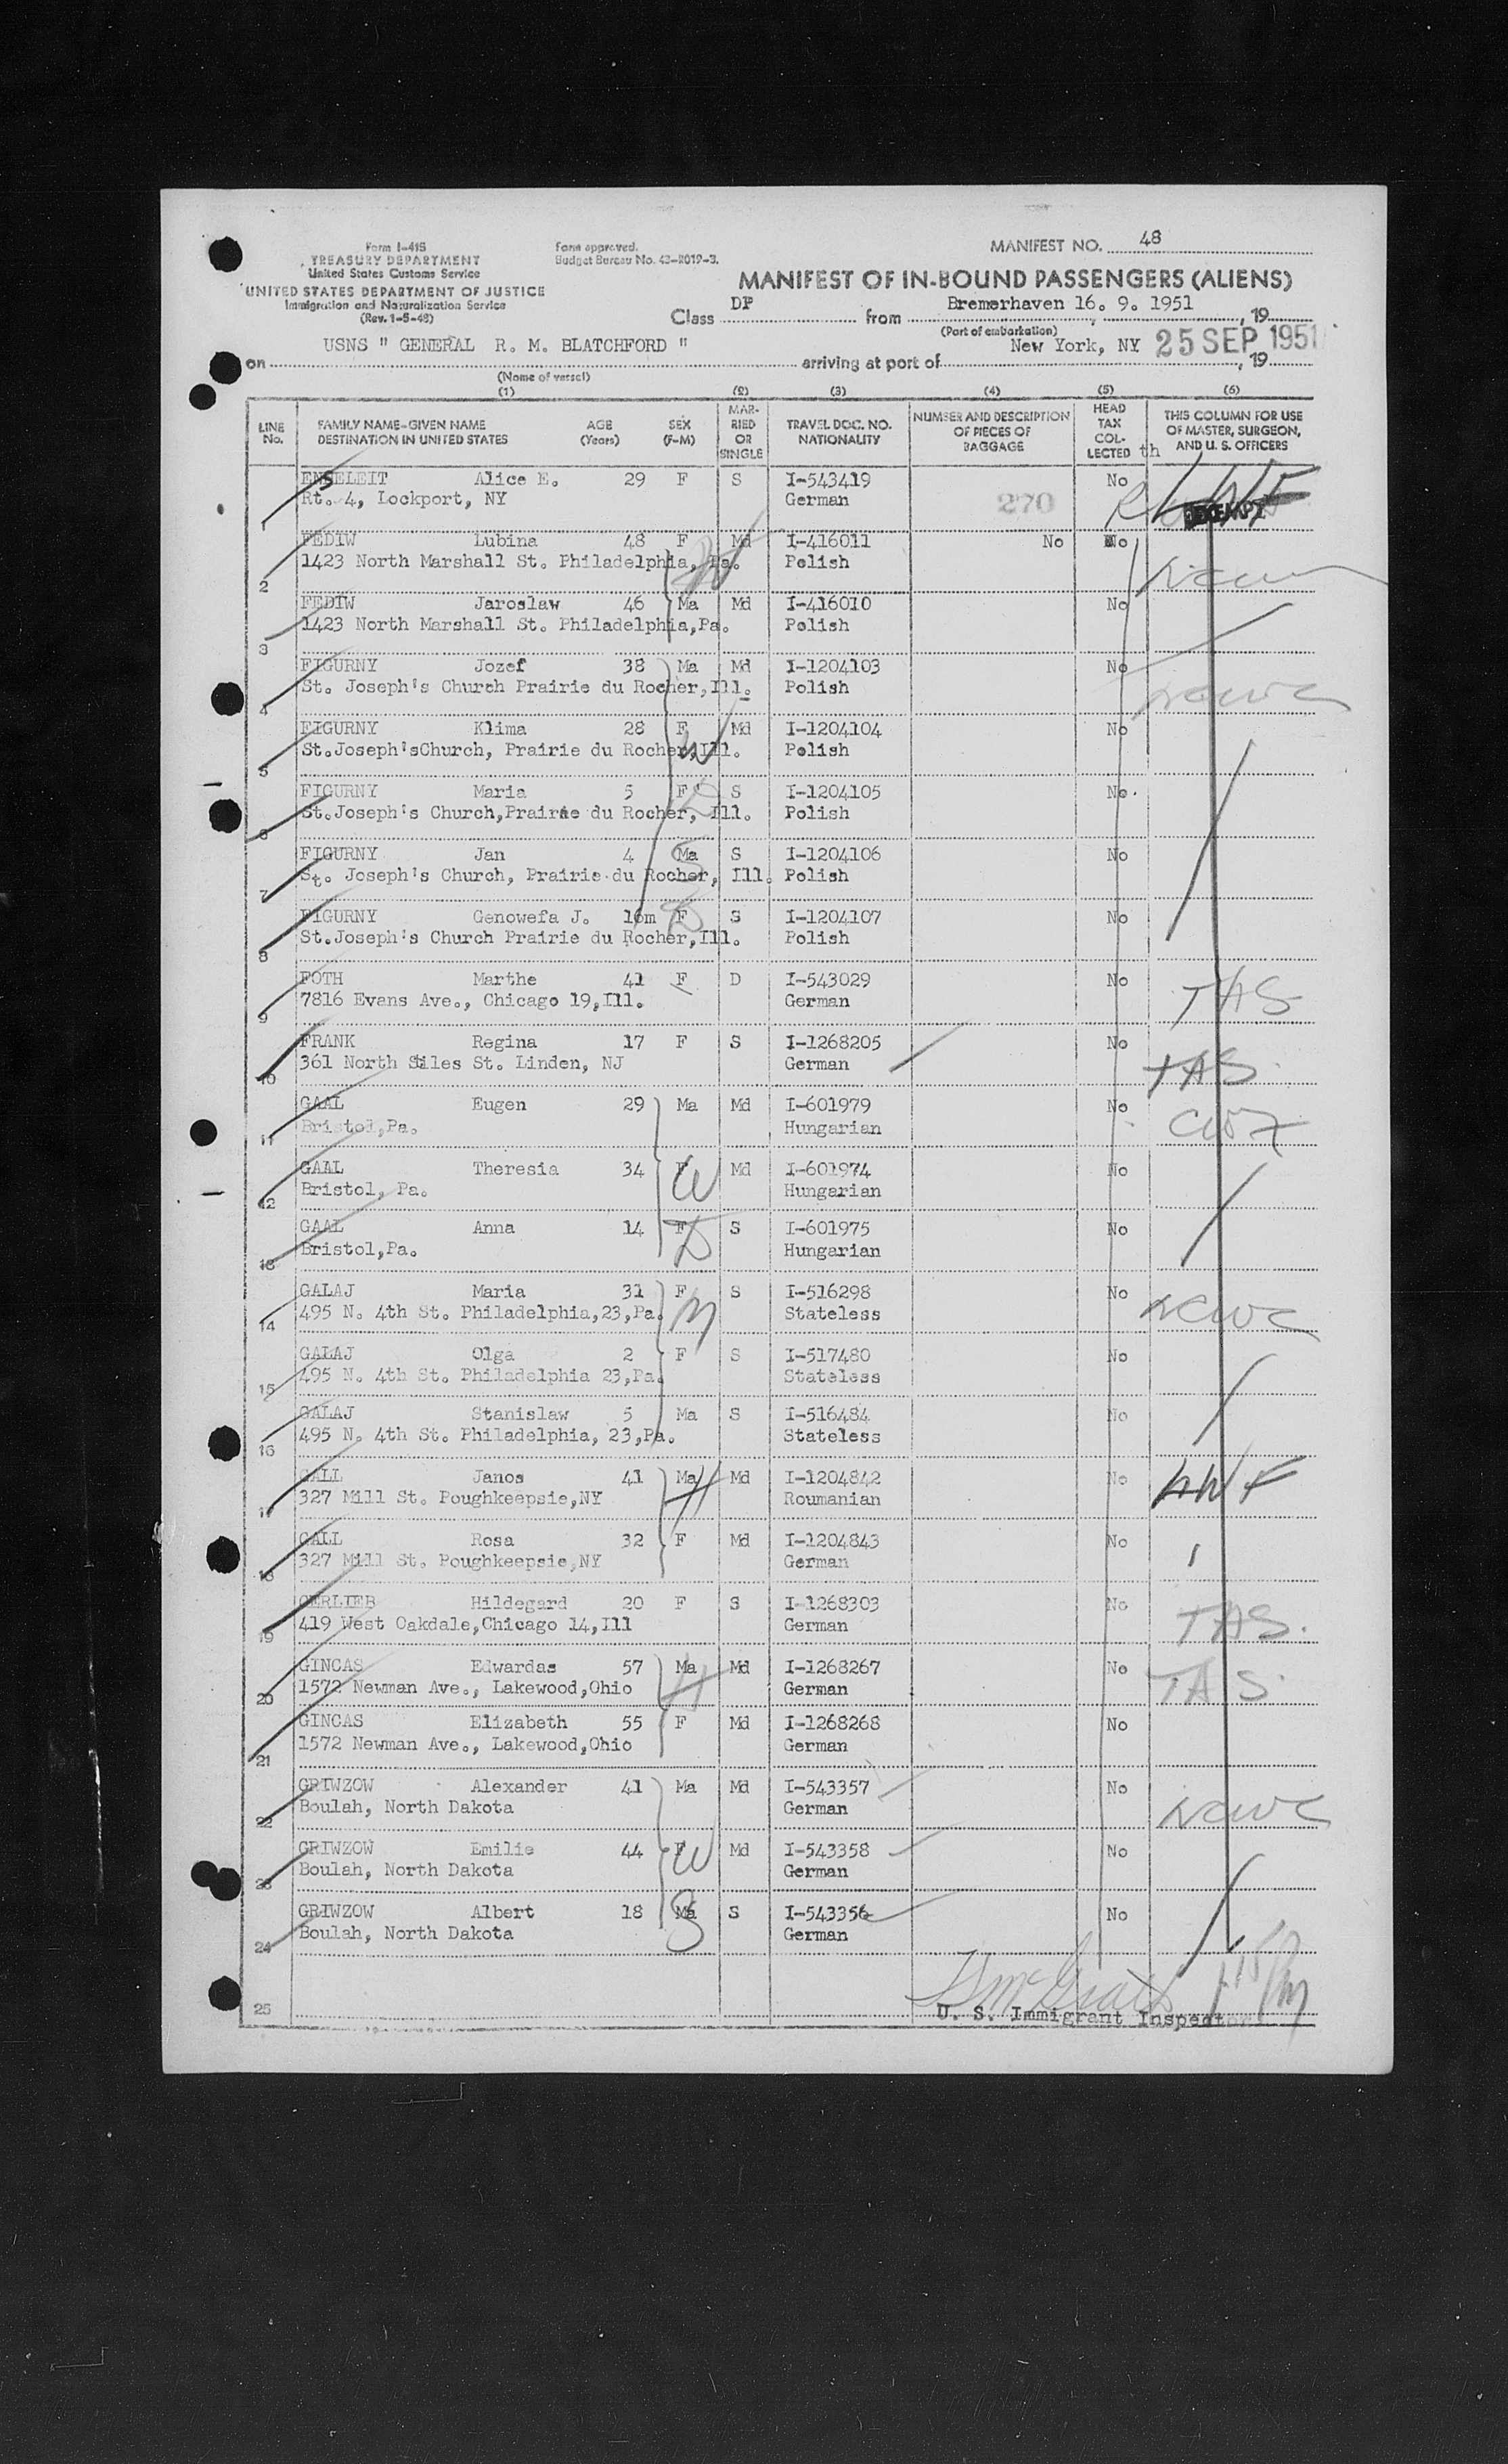 Form I-415
TREASURY DEPARTMENT
United States Customs Service
UNITED STATES DEPARTMENT OF JUSTICE
Immigration and Naturalization Service
(Rev. 1-5-48)
Form approved.
Budget Bureau No. 43-R019-3.
MANIFEST NO. 48
MANIFEST OF IN-BOUND PASSENGERS (ALIENS)
Class DP from Bremerhaven 16. 9. 1951, 19
(Port of embarkation)
on USNS " GENERAL R. M. BLATCHFORD " arriving at port of New York, NY 25 SEP 1951, 19
(Name of vessel)
(1) (2) (3) (4) (5) (6)
LINE No. FAMILY NAME-GIVEN NAME DESTINATION IN UNITED STATES AGE (Years) SEX (F-M) MARRIED OR SINGLE TRAVEL DOC. NO. NATIONALITY NUMBER AND DESCRIPTION OF PIECES OF BAGGAGE HEAD TAX COLLECTED th THIS COLUMN FOR USE OF MASTER, SURGEON, AND U. S. OFFICERS
ENSELEIT Alice E. 29 F S I-543419 No LWF
1 Rt. 4, Lockport, NY German 270 EXEMPT
FEDIW Lubina 48 F Md I-416011 No No
2 1423 North Marshall St. Philadelphia, Pa. Polish
FEDIW Jaroslaw 46 Ma Md I-416010 No
3 1423 North Marshall St. Philadelphia,Pa. Polish
FIGURNY Jozef 38 Ma Md I-1204103 No
4 St. Joseph's Church Prairie du Rocher,Ill. Polish
FIGURNY Klima 28 F Md I-1204104 No
5 St.Joseph'sChurch, Prairie du Rocher,Ill. W Polish
FIGURNY Maria 5 F S I-1204105 No
6 St.Joseph's Church,Prairie du Rocher, Ill. D Polish
FIGURNY Jan 4 Ma S I-1204106 No
7 St. Joseph's Church, Prairie du Rocher, Ill. S Polish
FIGURNY Genowefa J. 16m F S I-1204107 No
8 St.Joseph's Church Prairie du Rocher,Ill. D Polish
FOTH Marthe 41 F D I-543029 No TAS
9 7816 Evans Ave., Chicago 19,Ill. German
FRANK Regina 17 F S I-1268205 No TAS
10 361 North Stiles St. Linden, NJ German
GAAL Eugen 29 Ma Md I-601979 No
11 Bristol,Pa. Hungarian
GAAL Theresia 34 F Md I-601974 No
12 Bristol, Pa. W Hungarian
GAAL Anna 14 F S I-601975 No
13 Bristol,Pa. D Hungarian
GALAJ Maria 31 F S I-516298 No
14 495 N. 4th St. Philadelphia,23,Pa. M Stateless
GALAJ Olga 2 F S I-517480 No
15 495 N. 4th St. Philadelphia 23,Pa. Stateless
GALAJ Stanislaw 5 Ma S I-516484 No
16 495 N. 4th St. Philadelphia, 23,Pa. Stateless
GALL Janos 41 Ma H Md I-1204842 No LWF
17 327 Mill St. Poughkeepsie,NY Roumanian
GALL Rosa 32 F Md I-1204843 No
18 327 Mill St. Poughkeepsie,NY German
GERLIEB Hildegard 20 F S I-1268303 No TAS.
19 419 West Oakdale,Chicago 14,Ill German
GINCAS Edwardas 57 Ma H Md I-1268267 No TAS
20 1572 Newman Ave., Lakewood,Ohio German
GINCAS Elizabeth 55 F Md I-1268268 No
21 1572 Newman Ave., Lakewood,Ohio German
GRIWZOW Alexander 41 Ma Md I-543357 No
22 Boulah, North Dakota German
GRIWZOW Emilie 44 F Md I-543358 No
23 Boulah, North Dakota W German
GRIWZOW Albert 18 Ma S I-543356 No
24 Boulah, North Dakota S German
25 U. S. Immigrant Inspector